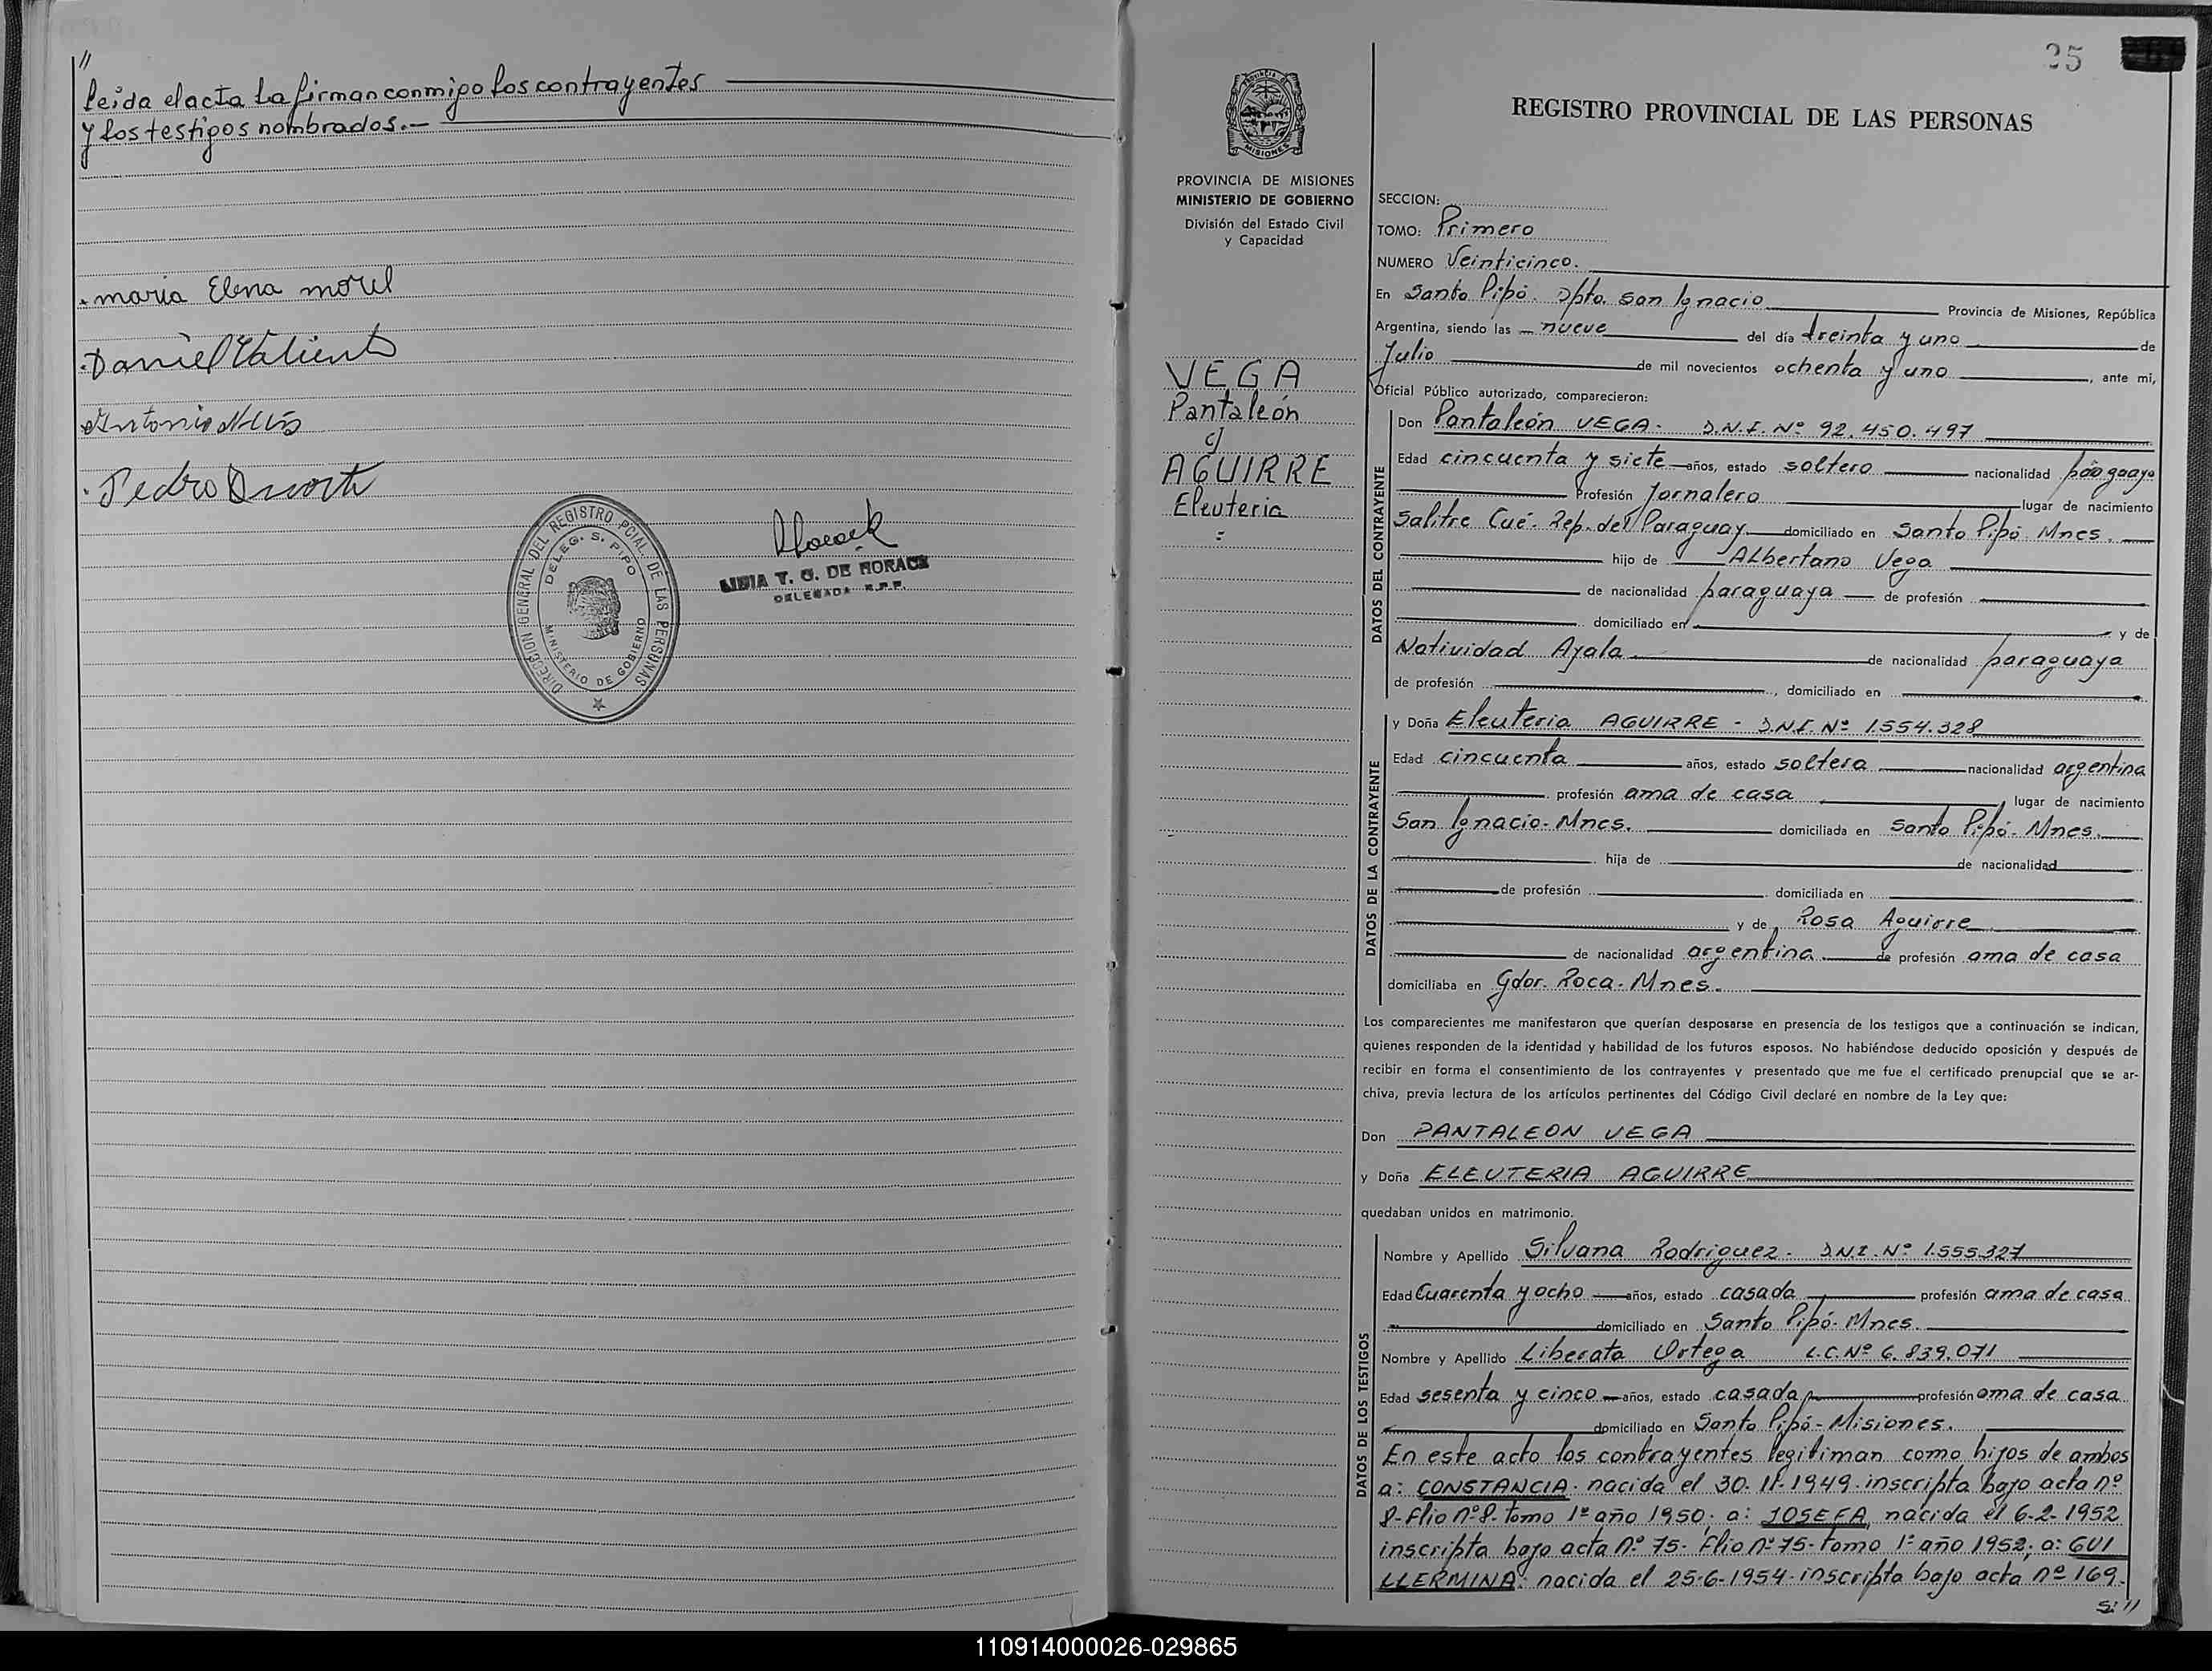 //
leída el acta La firman conmigo los contrayentes
y los testigos nombrados.-
maria Elena morel
Daniel Valiente
Antonio
Pedro Duarte
DIRECCION GENERAL DEL REGISTRO PCIAL. DE LAS PERSONAS
DELEG. S. PIPO
MINISTERIO DE GOBIERNO
LIDIA T. G. DE HORACK
DELEGADA R.P.P.
25
PROVINCIA DE MISIONES
MINISTERIO DE GOBIERNO
División del Estado Civil
y Capacidad
VEGA
Pantaleón
c/
AGUIRRE
Eleuteria
REGISTRO PROVINCIAL DE LAS PERSONAS
SECCION:
TOMO: Primero
NUMERO Veinticinco.
En Santo Pipó. Dpto. San Ignacio Provincia de Misiones, República
Argentina, siendo las nueve del día treinta y uno de
Julio de mil novecientos ochenta y uno, ante mi,
Oficial Público autorizado, comparecieron:
DATOS DEL CONTRAYENTE
Don Pantaleón VEGA - D.N.I. Nº 92.450.497
Edad cincuenta y siete años, estado soltero nacionalidad paraguaya
Profesión Jornalero lugar de nacimiento
Salitre Cué. Rep. del Paraguay domiciliado en Santo Pipó. Mnes.
hijo de ALbertano Vega
de nacionalidad paraguaya de profesión
domiciliado en y de
Natividad Ayala de nacionalidad paraguaya
de profesión , domiciliado en
DATOS DE LA CONTRAYENTE
y Doña Eleuteria AGUIRRE - D.N.I. Nº 1.554.328
Edad cincuenta años, estado soltera nacionalidad argentina
profesión ama de casa lugar de nacimiento
San Ignacio- Mnes. domiciliada en Santo Pipó- Mnes.
hija de de nacionalidad
de profesión domiciliada en
y de Rosa Aguirre
de nacionalidad argentina de profesión ama de casa
domiciliaba en Gdor. Roca - Mnes.
Los comparecientes me manifestaron que querían desposarse en presencia de los testigos que a continuación se indican,
quienes responden de la identidad y habilidad de los futuros esposos. No habiéndose deducido oposición y después de
recibir en forma el consentimiento de los contrayentes y presentado que me fue el certificado prenupcial que se ar-
chiva, previa lectura de los artículos pertinentes del Código Civil declaré en nombre de la Ley que:
Don PANTALEON VEGA
y Doña ELEUTERIA AGUIRRE
quedaban unidos en matrimonio.
DATOS DE LOS TESTIGOS
Nombre y Apellido Silvana Rodriguez - D.N.I. Nº 1.555.327
Edad Cuarenta y ocho años, estado casada profesión ama de casa
domiciliado en Santo Pipó- Mnes.
Nombre y Apellido Liberata Ortega L.C. Nº 6.839.071
Edad sesenta y cinco años, estado casada profesión ama de casa
domiciliado en Santo Pipó- Misiones.
En este acto los contrayentes legitiman como hijos de ambos
a: CONSTANCIA. nacida el 30-11-1949-inscripta bajo acta nº
8-Flio nº 8-tomo 1º año 1950; a: JOSEFA nacida el 6-2-1952
inscripta bajo acta nº 75- Flio nº 75-tomo 1º año 1952; a: GUI
LLERMINA: nacida el 25-6-1954-inscripta bajo acta nº 169-
110914000026-029865